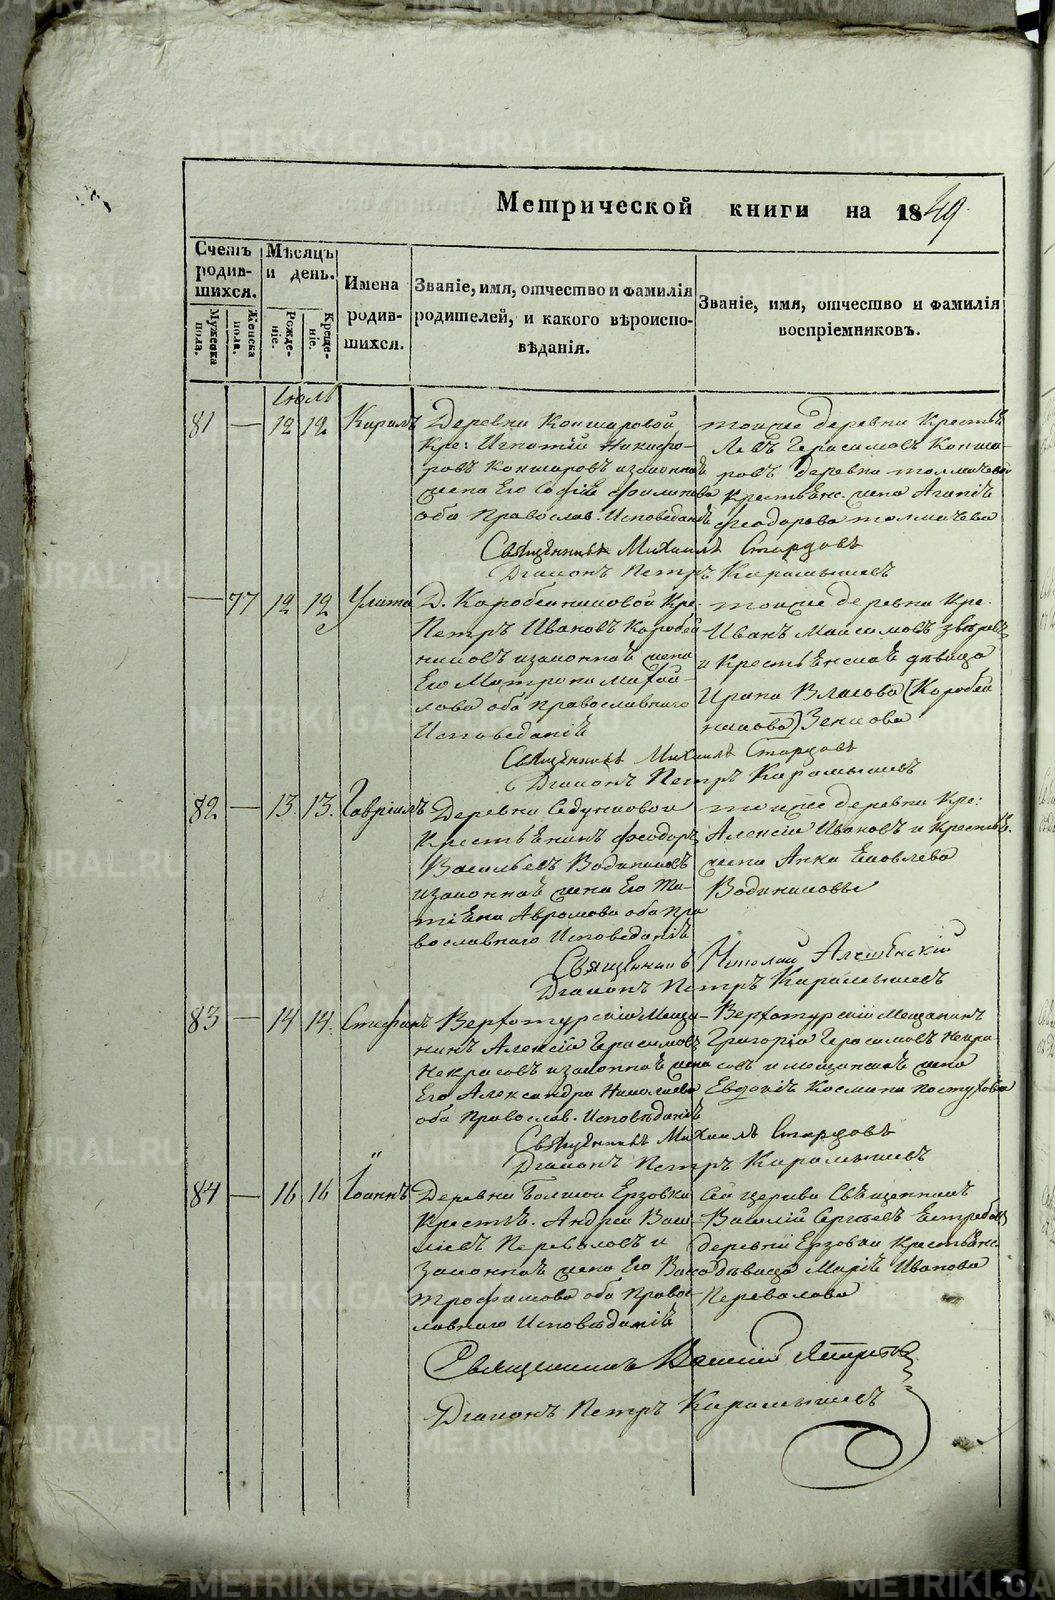 METRIKI.GASO-URAL.RU
Метрической книги на 1849.
Счетъ родив-шихся.
Мужеска пола.
Женска пола.
Мѣсяцъ и день.
Рожде-ніе.
Креще-ніе.
Имена родив-шихся.
Званіе, имя, отчество и фамилія родителей, и какого вѣроиспо-вѣданія.
Званіе, имя, отчество и фамилія воспріемниковъ.
Іюль
81 — 12 12 Кирилъ
Деревни Кокшаровой
Кре: Игнатій Никифо-
ровъ Кокшаровъ изаконная
жена Его Софіѣ Филипова
оба Православ. Исповеданіѣ
тойже деревни Крестьѣ
Левъ Герасимовъ Кокша-
ровъ деревни толмачевой
Крестьѣнс. жена Агапіѣ
Феодорова толмачева
Свѣщенникъ Михаилъ Старцовъ
Діаконъ Петръ Карамышевъ
— 77 12 12 Улита
Д. Коробейниковой Кре.
Петръ Ивановъ Коробей-
никовъ изаконнаѣ жена
Его Матрона Михай-
лова оба православнаго
Исповеданіѣ
тойже деревни Кре.
Иванъ Максимовъ Звѣревъ
и Крестьѣнскаѣ дѣвица
Ирина Власова (Коробей
никова) Зенкова
Свѣщенникъ Михаилъ Старцовъ
Діаконъ Петръ Карамышевъ
82 — 13. 13. Гавріилъ
Деревни Седунковой
Крестьѣнинъ Феодоръ
Васильевъ Водиниковъ
изаконнаѣ жена Его Та-
тіѣна Аврамова оба пра
вославнаго Исповеданіѣ
тойже деревни Кре:
Алексій Ивановъ и Крестьѣ.
жена Анна Еаковлева
Водиниковы
Священникъ Николай
Діаконъ Петръ Карамышевъ
83 — 14 14. Стефанъ
Верхотурскій Меща-
нинъ Алексій Герасимовъ
Некрасовъ изаконнаѣ жена
Его Александра Николаева
оба Православ. Исповѣданіѣ
Верхотурскій Мещанинъ
Григорій Герасимовъ Некра-
совъ и мещанинъ жена
Евдокіѣ Космина Постухова
Свѣщенникъ Михаилъ Старцовъ
Діаконъ Петръ Карамышевъ
84 — 16 16 Іоаннъ
Деревни Большой Ерзовки
Крестьѣ. Андрей Васи-
лиевъ Переваловъ и
Законнаѣ жена Его Васа
Трофимова оба Право-
славнаго Исповѣданіѣ
Сей церкви Свѣщенникъ
Василій Сергѣевъ Естребовъ
деревни Ерзовки Крестьѣнс.
дѣвица Маріѣ Иванова
Перевалова
Священникъ Василій
Діаконъ Петръ Карамышевъ